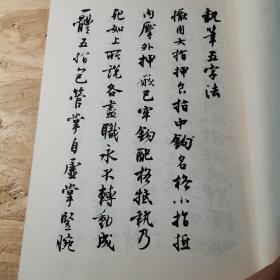 執筆五字法
擫用大指押食指中鈎名格小指抵
內擫外押已牢鈎配格抵執乃
死如上所說各盡職永不轉動成
一體五指包管掌自虛掌豎腕